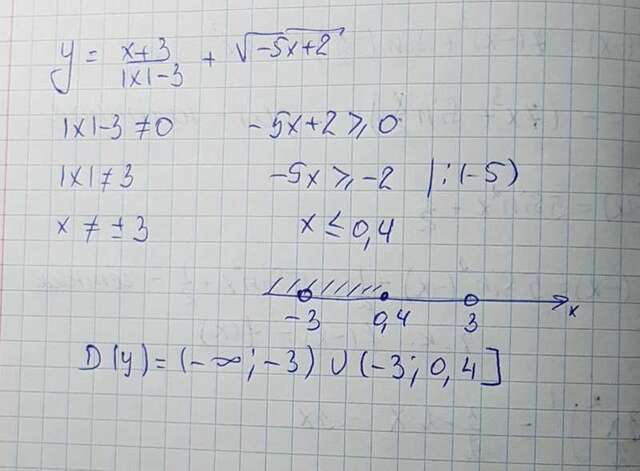 y = x+3 / |x|-3 + √-5x+2
|x|-3 ≠ 0 -5x+2 ⩾ 0
|x| ≠ 3 -5x ⩾ -2 | : (-5)
x ≠ ± 3 x ≤ 0,4
-3 0,4 3 x
D(y) = (-∞; -3) ∪ (-3; 0,4]